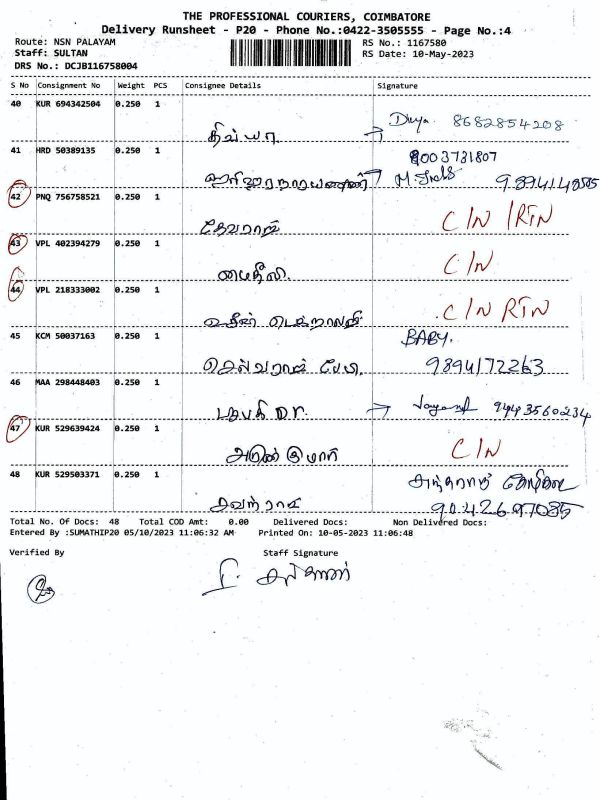 THE PROFESSIONAL COURIERS, COIMBATORE
Delivery Runsheet - P20 - Phone No.:0422-3505555 - Page No.:4
Route: NSN PALAYAM RS No.: 1167580
Staff: SULTAN RS Date: 10-May-2023
DRS No.: DCJB116758004
S No Consignment No Weight PCS Consignee Details Signature
40 KUR 694342504 0.250 1
திவ்யா. → Divya 8682854208
41 HRD 50389135 0.250 1 9003731807
9894148505
42 PNQ 756758521 0.250 1 C/N /RTN
தேவராஜ்
43 VPL 402394279 0.250 1 C/N
மைதிலி.
44 VPL 218333002 0.250 1 C/N RTN
45 KCM 50037163 0.250 1 BABY.
செல்வராஜ் பேபி. 9894172263
46 MAA 298448403 0.250 1
Dr. → 9443560234
47 KUR 529639424 0.250 1 C/N
அருண் குமார்
48 KUR 529503371 0.250 1
9042697085
Total No. Of Docs: 48 Total COD Amt: 0.00 Delivered Docs: Non Delivered Docs:
Entered By :SUMATHIP20 05/10/2023 11:06:32 AM Printed On: 10-05-2023 11:06:48
Verified By Staff Signature